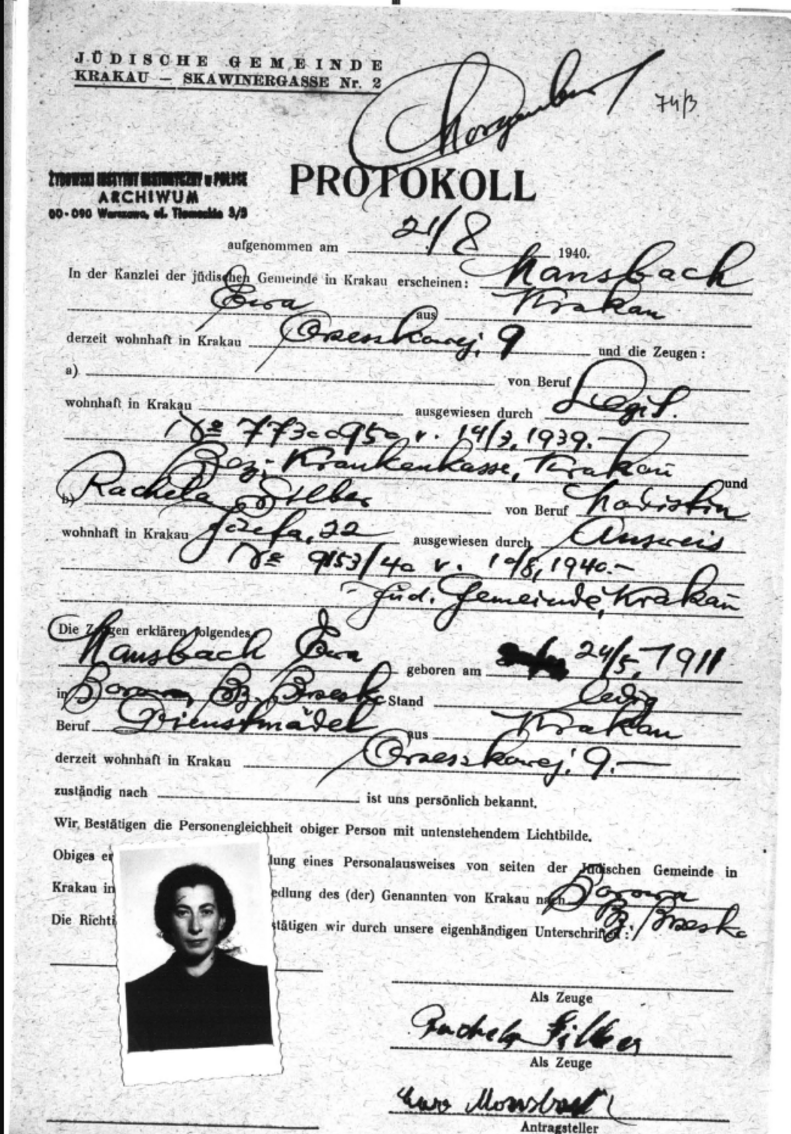 JÜDISCHE GEMEINDE
KRAKAU — SKAWINERGASSE Nr. 2
74/3
ŻYDOWSKI INSTYTUT HISTORYCZNY w POLSCE
ARCHIWUM
00-090 Warszawa, ul. Tłomackie 3/5
PROTOKOLL
aufgenommen am 21/8 1940.
In der Kanzlei der jüdischen Gemeinde in Krakau erscheinen: Mansbach
Ewa aus Krakau
derzeit wohnhaft in Krakau Orzeszkowej, 9 und die Zeugen:
a) von Beruf Legit.
wohnhaft in Krakau ausgewiesen durch
v. 14/3, 1939.—
Krankenkasse, Krakau und
b) Rachela Silber von Beruf Modistin
wohnhaft in Krakau Józefa, 22 ausgewiesen durch Ausweis
No 9153/40 v. 10/8, 1940.—
Jüd. Gemeinde, Krakau
Die Zeugen erklären folgendes:
Mansbach Ewa geboren am 24/5, 1911
in Borowa, Bz. Brzesko Stand ledig
Beruf Dienstmädel aus Krakau
derzeit wohnhaft in Krakau Orzeszkowej, 9.—
zuständig nach ist uns persönlich bekannt.
Wir Bestätigen die Personengleichheit obiger Person mit untenstehendem Lichtbilde.
Obiges er lung eines Personalausweises von seiten der Jüdischen Gemeinde in
Krakau in edlung des (der) Genannten von Krakau nach Borowa
Bz. Brzesko
Die Richti stätigen wir durch unsere eigenhändigen Unterschriften:
Als Zeuge
Rachela Silber
Als Zeuge
Ewa Mansbach
Antragsteller